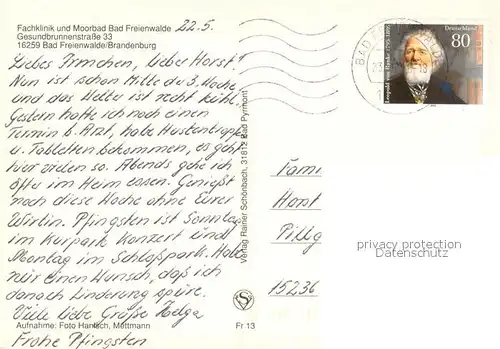 Fachklinik und Moorbad Bad Freienwalde
Gesundbrunnenstraße 33
16259 Bad Freienwalde/Brandenburg
22.5.
Liebes Irmchen, lieber Horst!
Nun ist schon Mitte d. 3. Woche
und das Wetter ist recht kühl.
Gestern hatte ich noch einen
Termin b. Arzt, habe Hustentropfen
u. Tabletten bekommen, es geht
hier vielen so. Abends gehe ich
öfter im Heim essen. Genießt
noch diese Woche ohne Eure
Wirtin. Pfingsten ist Sonntag
im Kurpark Konzert und
Montag im Schloßpark. Habe
nur einen Wunsch, daß ich
danach Linderung spüre.
Viele liebe Grüße Helga
Aufnahme: Foto Hantsch, Mettmann
Fr 13
Frohe Pfingsten
Verlag Rainer Schönbach, 31812 Bad Pyrmont
Deutschland
80
Leopold von Ranke 1795-1886
BAD
Fam.
Horst
15236
privacy protection
Datenschutz